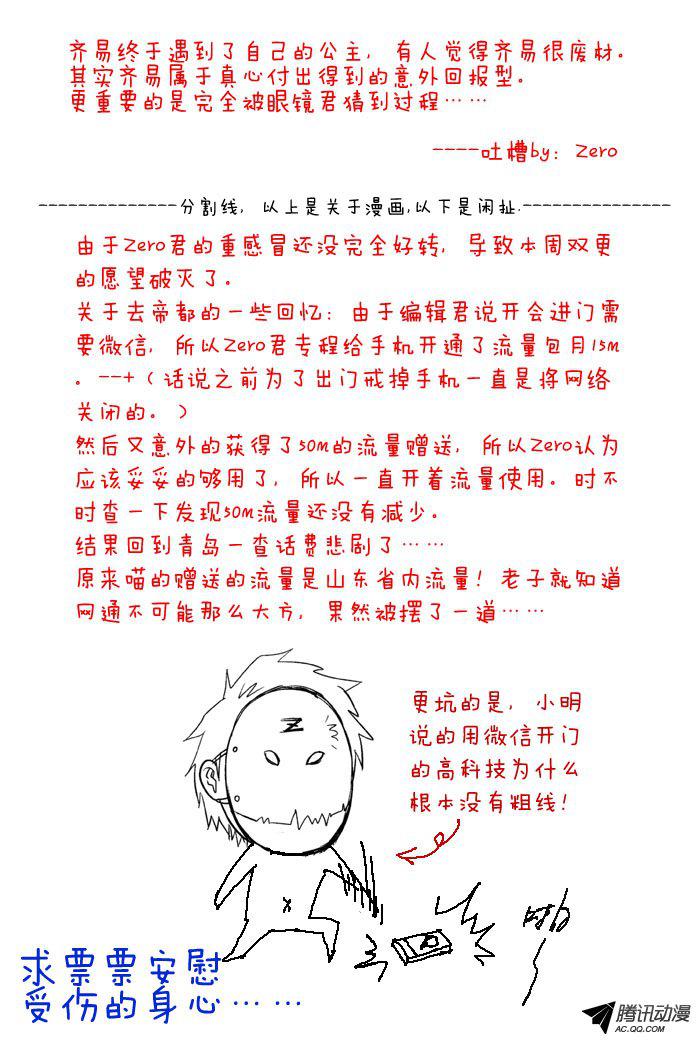 齐易终于遇到了自己的公主，有人觉得齐易很废材。
其实齐易属于真心付出得到的意外回报型。
更重要的是完全被眼镜君猜到过程……
----吐槽by：Zero
--------------分割线，以上是关于漫画,以下是闲扯.---------------
由于Zero君的重感冒还没完全好转，导致本周双更
的愿望破灭了。
关于去帝都的一些回忆：由于编辑君说开会进门需
要微信，所以Zero君专程给手机开通了流量包月15m
。--+（话说之前为了出门戒掉手机一直是将网络
关闭的。）
然后又意外的获得了50m的流量赠送，所以Zero认为
应该妥妥的够用了，所以一直开着流量使用。时不
时查一下发现50m流量还没有减少。
结果回到青岛一查话费悲剧了……
原来喵的赠送的流量是山东省内流量！老子就知道
网通不可能那么大方，果然被摆了一道……
更坑的是，小明
说的用微信开门
的高科技为什么
根本没有粗线！
Z
求票票安慰
受伤的身心……
腾讯动漫
AC.QQ.COM